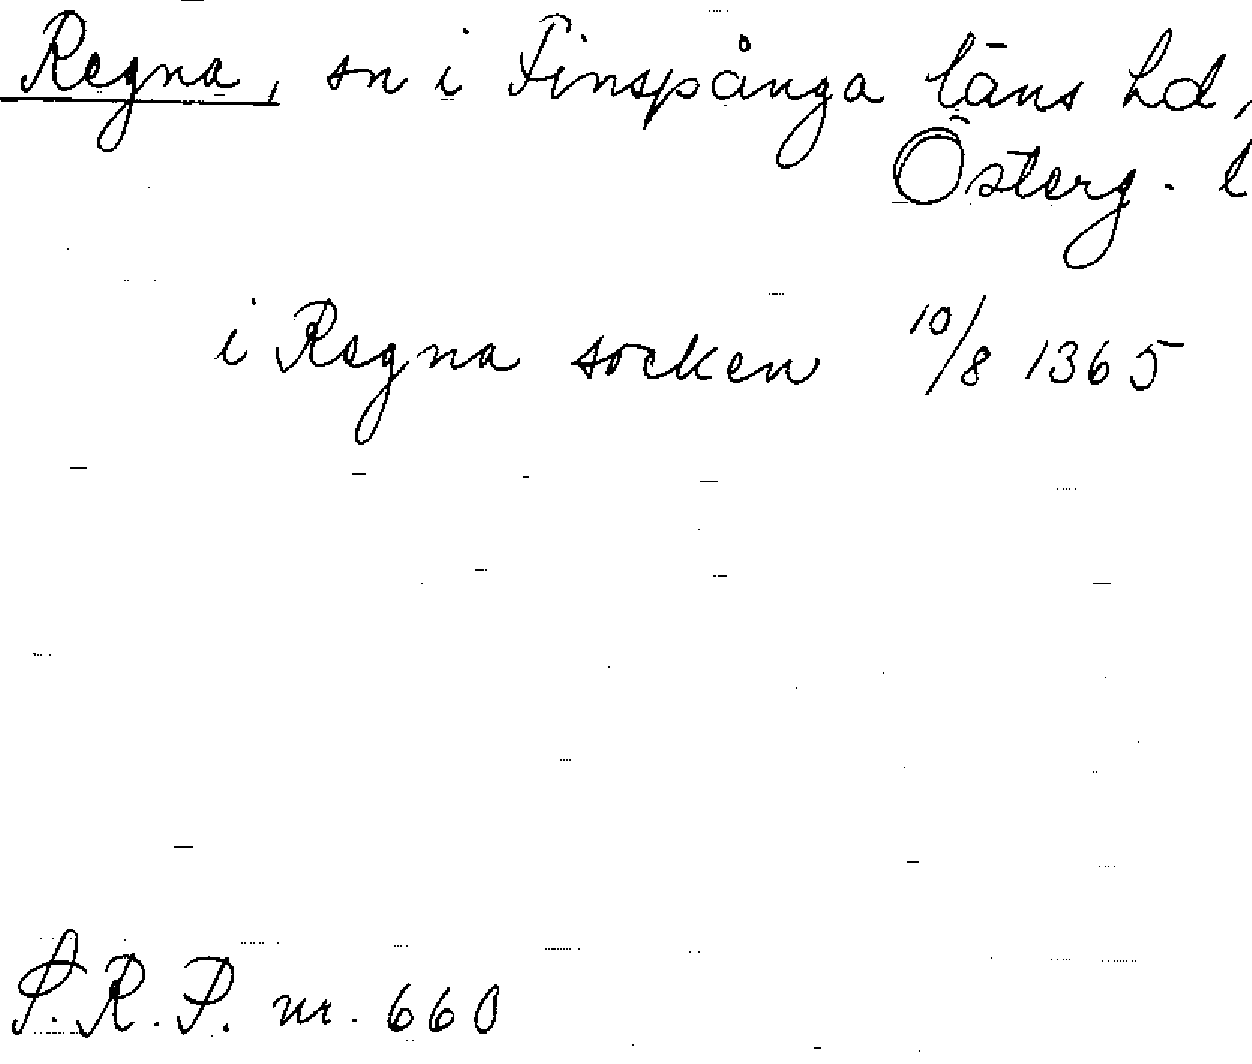 Regna, sn i Finspånga läns hd,
Österg. l
i Regna socken 10/8 1365
S.R.P. nr. 660